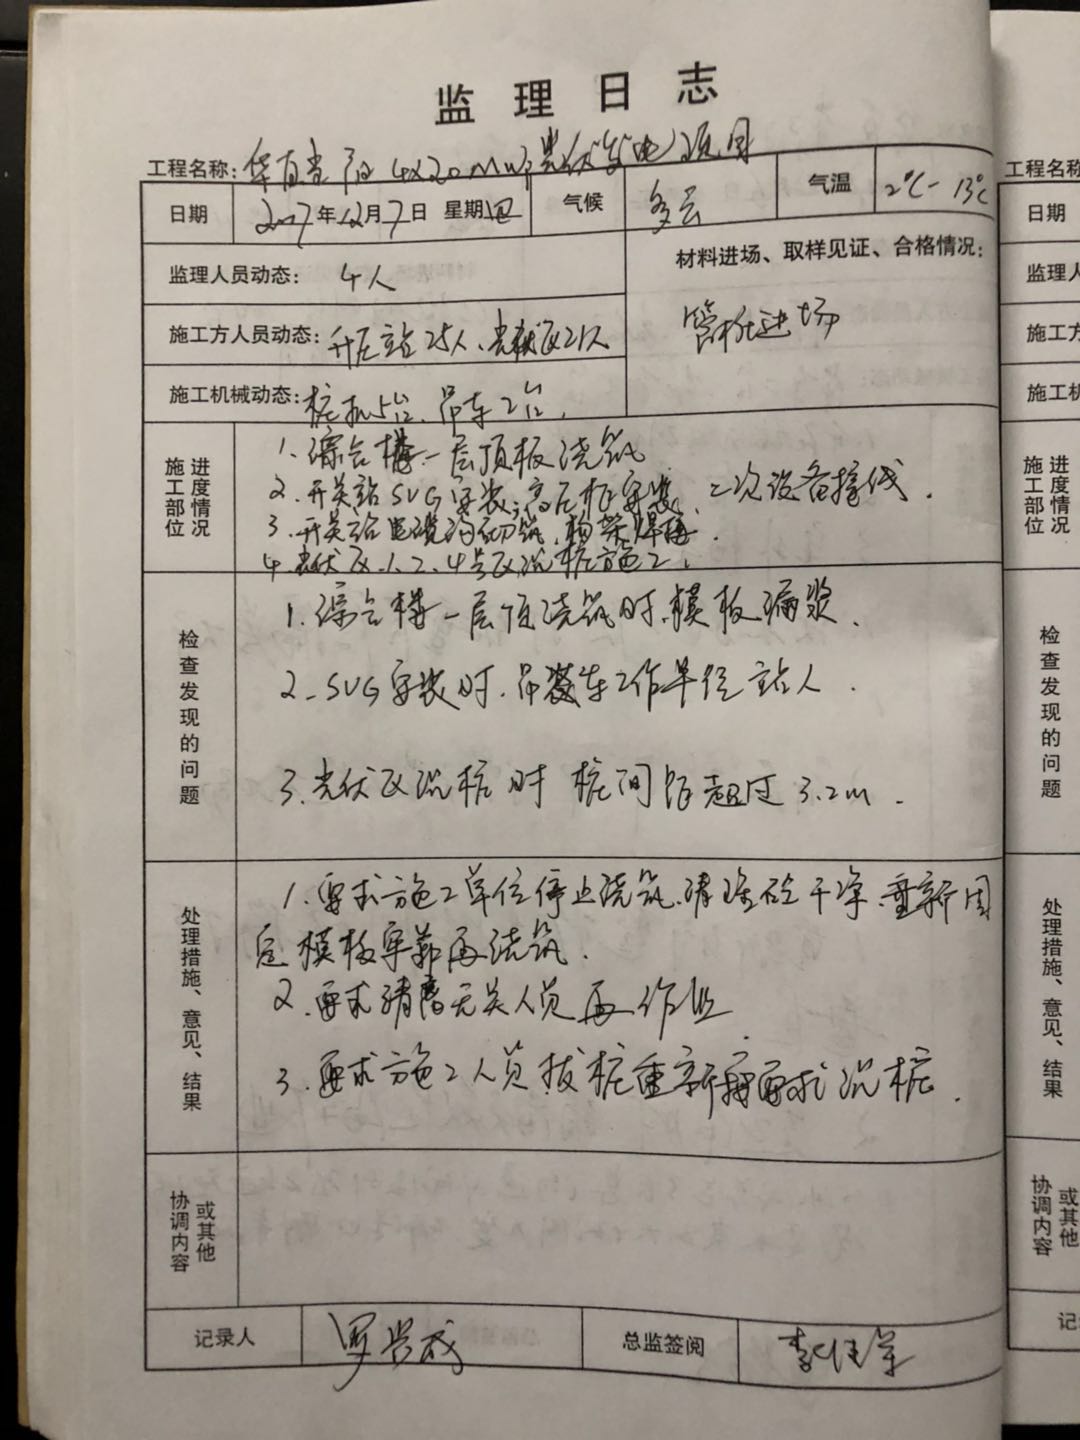 监理日志
工程名称: 4×20MWp光伏发电项目
日期 2017年12月7日 星期四 气候 多云 气温 2℃-13℃
监理人员动态: 4人
材料进场、取样见证、合格情况:
管桩进场
施工方人员动态: 升压站25人、光伏区21人
施工机械动态: 桩机5台、吊车2台.
施工部位 进度情况
1.综合楼一层顶板浇筑
2.开关站SVG安装、高压柜安装、二次设备接线.
3.开关站电缆沟砌筑、焊接.
4.光伏区1、2、4号区沉桩施工.
检查发现的问题
1.综合楼一层顶浇筑时,模板漏浆.
2.SVG安装时.吊装车工作半径站人.
3.光伏区沉桩时 桩间距超过3.2m.
处理措施、意见、结果
1.要求施工单位停止浇筑,清除砼干净,重新固
定模板牢靠再浇筑.
2.要求清离无关人员再作业
3.要求施工人员拔桩重新按要求沉桩.
协调内容 或其他
记录人 总监签阅
工程名称
日期
监理人
施工方
施工机
施工部位 进度情况
检查发现的问题
处理措施、意见、结果
协调内容 或其他
记